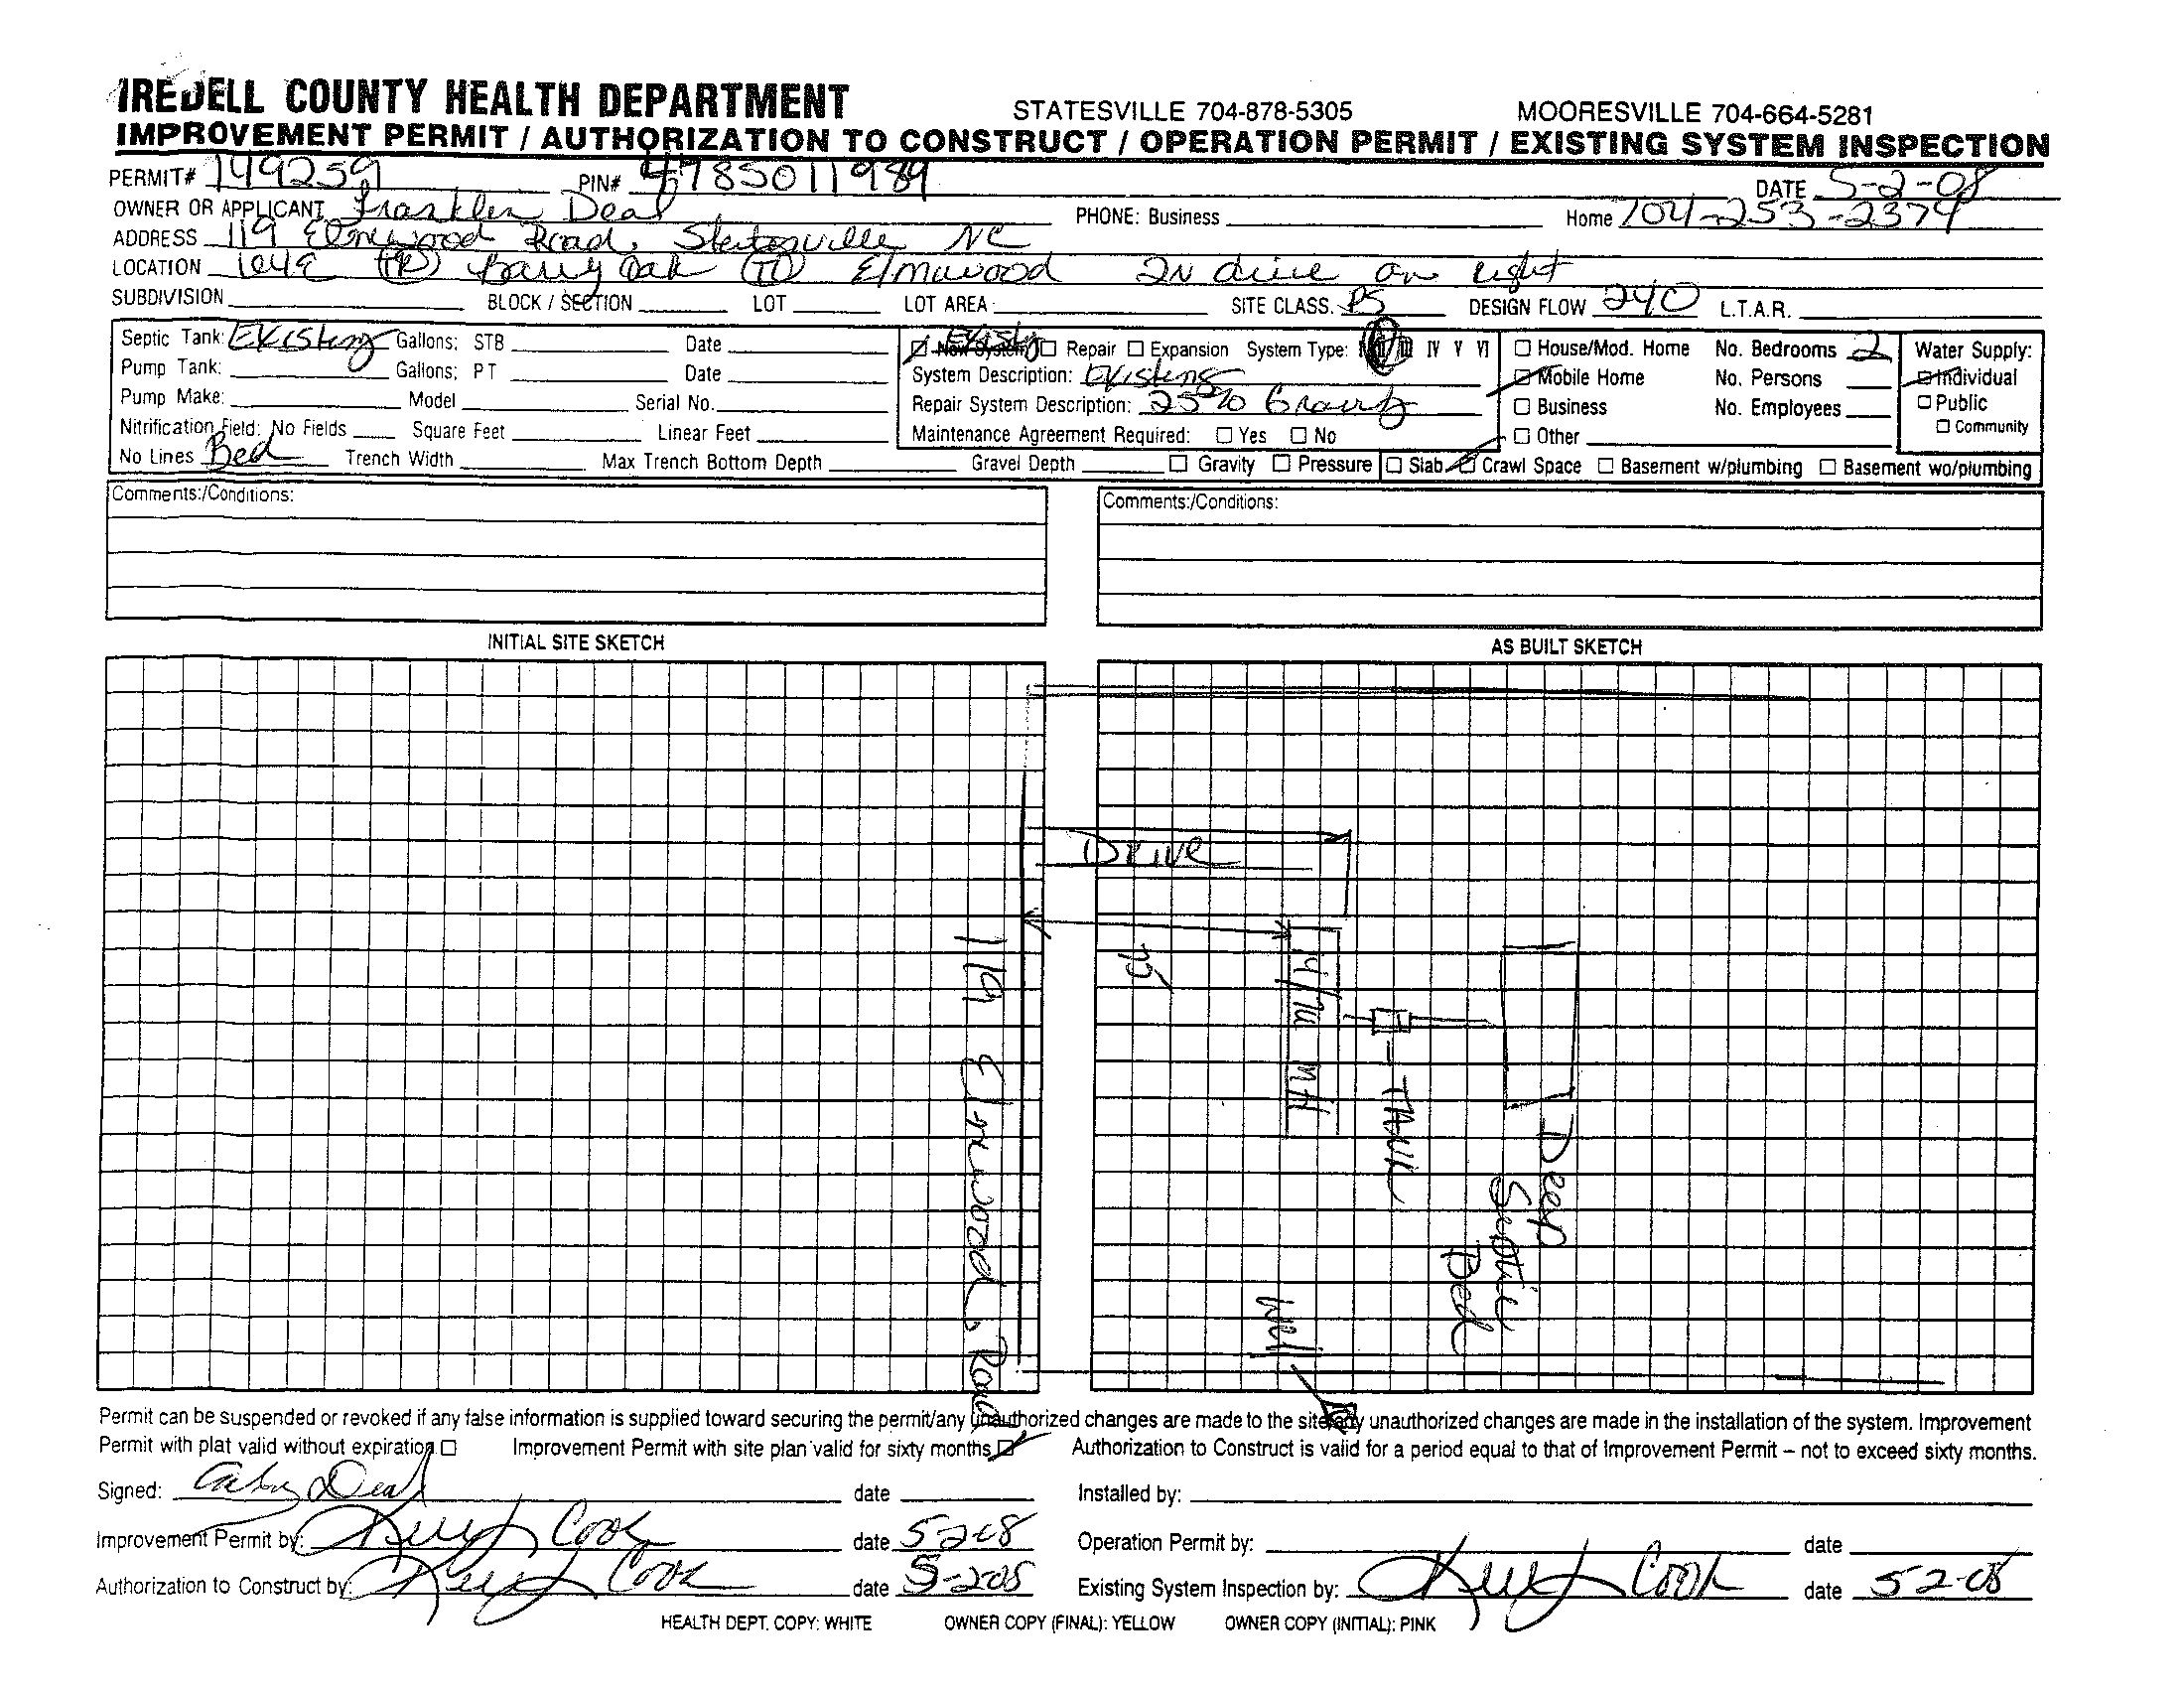 IREDELL COUNTY HEALTH DEPARTMENT STATESVILLE 704-878-5305 MOORESVILLE 704-664-5281
IMPROVEMENT PERMIT / AUTHORIZATION TO CONSTRUCT / OPERATION PERMIT / EXISTING SYSTEM INSPECTION
PERMIT# 149259 PIN# 4785011989 DATE 5-2-08
OWNER OR APPLICANT Franklin Deal PHONE: Business Home 704-253-2374
ADDRESS 119 Elmwood Road, Statesville NC
LOCATION (TR) Barry Oak (TL) Elmwood 2N drive on right
SUBDIVISION BLOCK / SECTION LOT LOT AREA SITE CLASS. PS DESIGN FLOW 240 L.T.A.R.
Septic Tank: Existing Gallons: STB Date New System Existing Repair Expansion System Type: II III IV V VI House/Mod. Home No. Bedrooms 2 Water Supply:
Pump Tank: Gallons: PT Date System Description: Existing Mobile Home No. Persons Individual
Pump Make: Model Serial No. Repair System Description: 25% Gravity Business No. Employees Public
Nitrification Field: No Fields Square Feet Linear Feet Maintenance Agreement Required: Yes No Other Community
No Lines Bed Trench Width Max Trench Bottom Depth Gravel Depth Gravity Pressure Slab Crawl Space Basement w/plumbing Basement wo/plumbing
Comments:/Conditions: Comments:/Conditions:
INITIAL SITE SKETCH AS BUILT SKETCH
Drive
119 Elmwood Road
MH
TANK
Deep
Septic
Bed
Well
Permit can be suspended or revoked if any false information is supplied toward securing the permit/any unauthorized changes are made to the site/any unauthorized changes are made in the installation of the system. Improvement
Permit with plat valid without expiration Improvement Permit with site plan valid for sixty months Authorization to Construct is valid for a period equal to that of Improvement Permit – not to exceed sixty months.
Signed: Deal date Installed by:
Improvement Permit by: Cook date 5-2-08 Operation Permit by: date
Authorization to Construct by: Cook date 5-2-08 Existing System Inspection by: Cook date 5-2-08
HEALTH DEPT. COPY: WHITE OWNER COPY (FINAL): YELLOW OWNER COPY (INITIAL): PINK